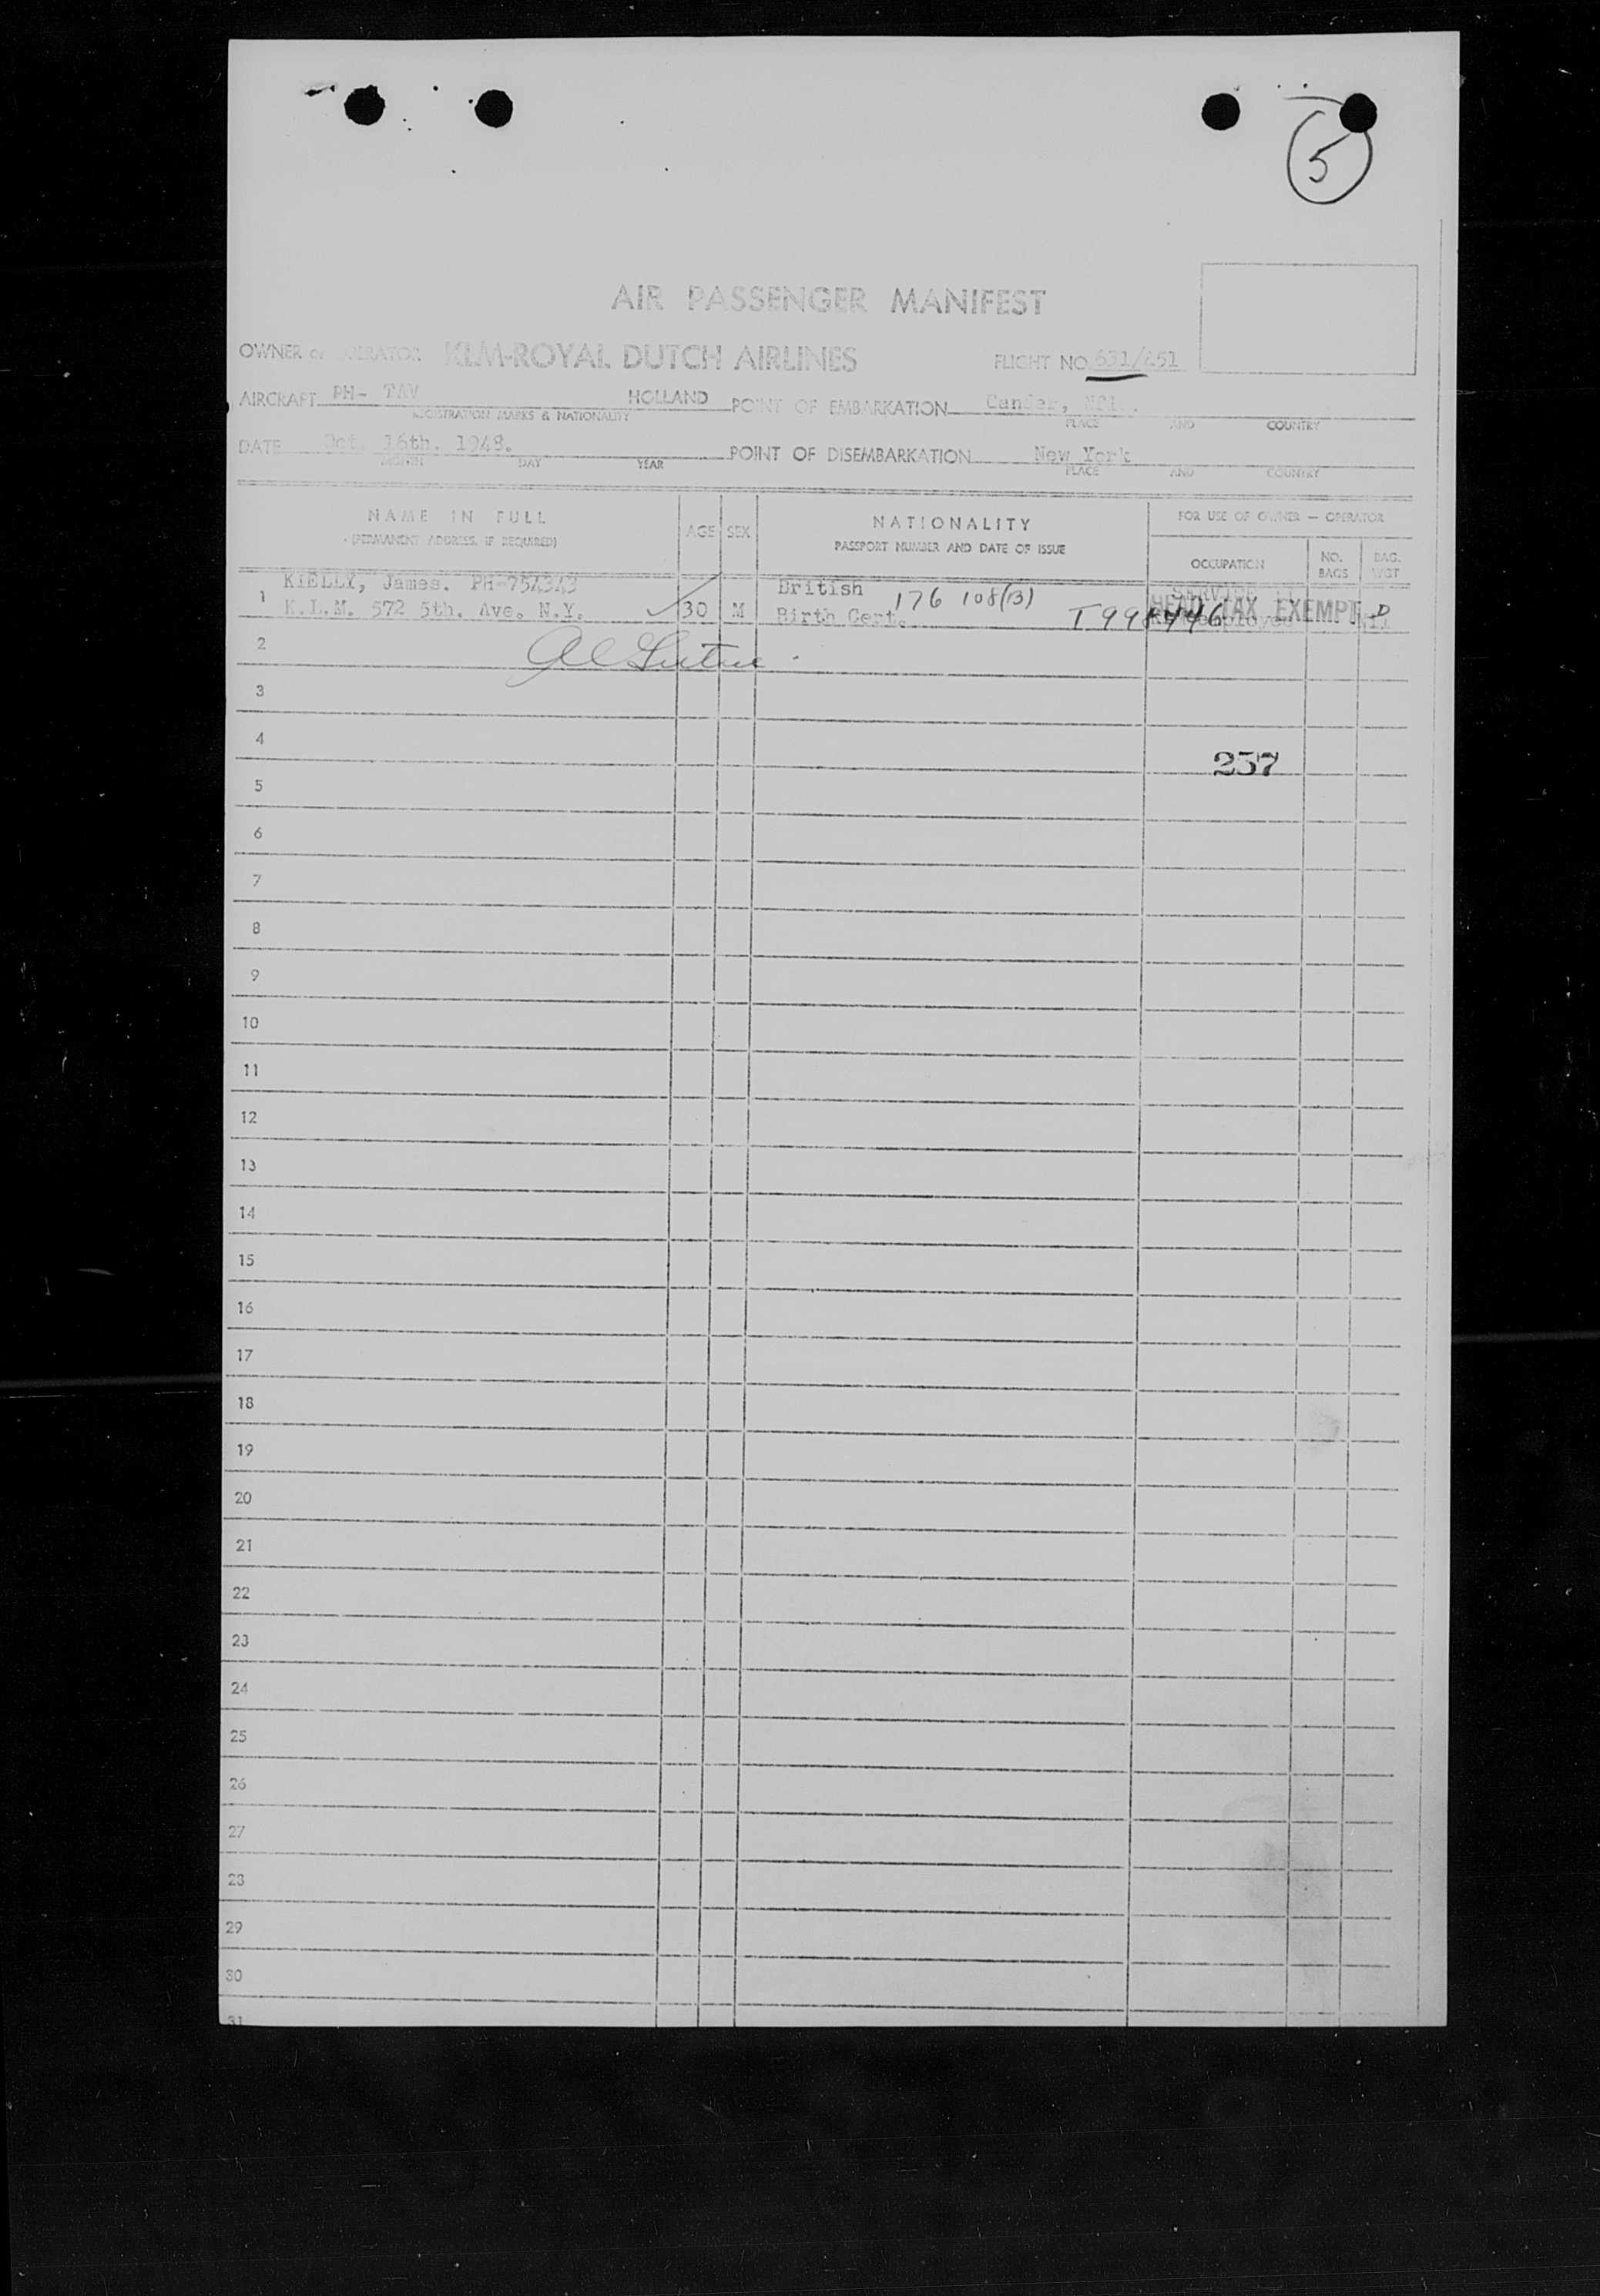 5
AIR PASSENGER MANIFEST
OWNER or OPERATOR KLM-ROYAL DUTCH AIRLINES FLIGHT NO. 631/451
AIRCRAFT PH- TAV HOLLAND POINT OF EMBARKATION Gander, Nfl.
REGISTRATION MARKS & NATIONALITY PLACE AND COUNTRY
DATE Oct. 16th. 1948. POINT OF DISEMBARKATION New York
MONTH DAY YEAR PLACE AND COUNTRY
NAME IN FULL AGE SEX NATIONALITY FOR USE OF OWNER — OPERATOR
(PERMANENT ADDRESS, IF REQUIRED) PASSPORT NUMBER AND DATE OF ISSUE OCCUPATION NO. BAGS BAG. WGT
1 KIELLY, James. PH-754343 British 176 108(13) SERVICE
K.L.M. 572 5th. Ave. N.Y. 30 M Birth Cert. T998446 HEAD TAX EXEMPT
2
3
4
237
5
6
7
8
9
10
11
12
13
14
15
16
17
18
19
20
21
22
23
24
25
26
27
28
29
30
31